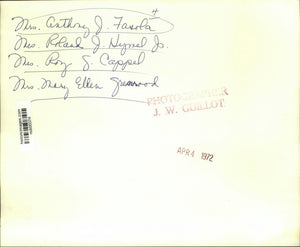 Mrs. Anthony J. Fasola
Mrs. Roland J. Hymel Jr.
Mrs. Roy J. Cappel
Mrs. Mary Ellen Greenwood
PHOTOGRAPHER
J. W. GUILLOT
APR 4 1972